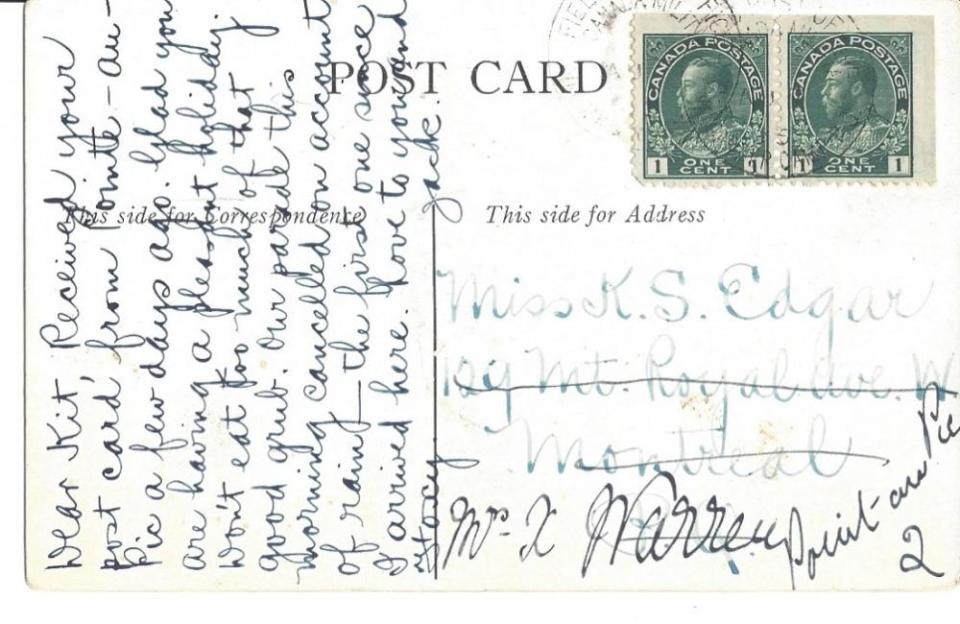 POST CARD
This side for Correspondence
This side for Address
CANADA POSTAGE
1 ONE CENT 1
CANADA POSTAGE
1 ONE CENT 1
Dear Kit Received your
post card, from Pointe-au-
Pic a few days ago. Glad you
are having a pleasant holiday
Won't eat too much of that
good grub. Our parade this
morning cancelled on account
of rain — the first one since
I arrived here. Love to you and
Stacey Jack.
Miss K. S. Edgar
129 Mt. Royal Ave. W
Montreal
Mrs. X Warren
Point-au Pic
2